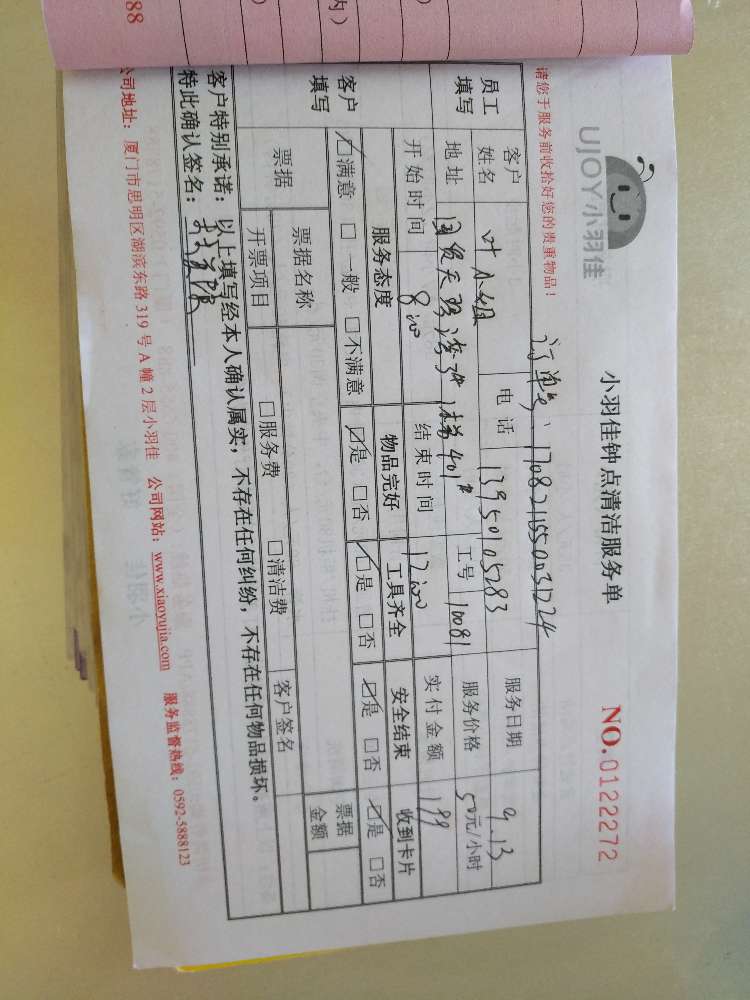 88
内）
）
UJOY小羽佳
小羽佳钟点清洁服务单
NO.0122272
请您于服务前收拾好您的贵重物品！
订单号：1708211550031224
员工填写
客户姓名
叶小姐
电话
13950105283
服务日期
9.13
地址
401
工号
10081
服务价格
50元/小时
开始时间
8:00
结束时间
12:00
实付金额
199
客户填写
服务态度
物品完好
工具齐全
安全结束
收到卡片
☑满意 □一般 □不满意
☑是 □否
☑是 □否
☑是 □否
☑是 □否
票据
票据名称
客户签名
票据金额
开票项目
□服务费 □清洁费
客户特别承诺：以上填写经本人确认属实，不存在任何纠纷，不存在任何物品损坏。
特此确认签名：
公司地址：厦门市思明区湖滨东路319号A幢2层小羽佳 公司网站：www.xiaoyujia.com 服务监督热线：0592-5888123